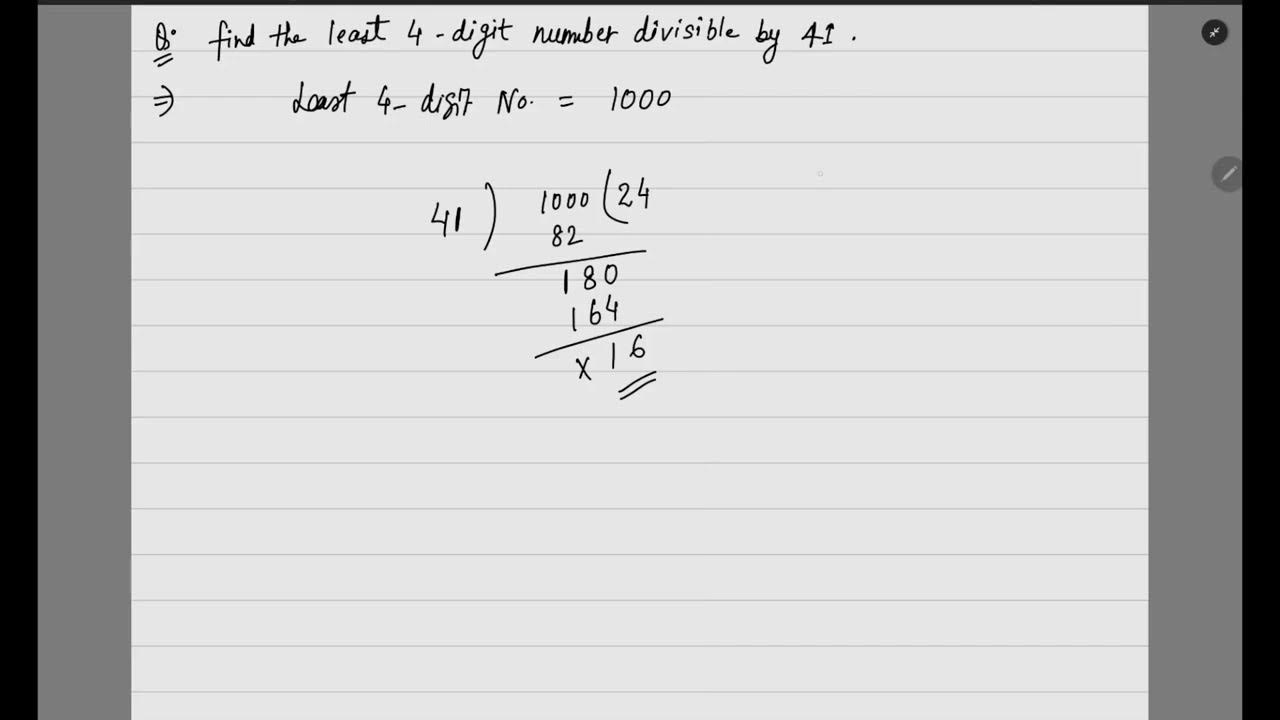 Q. find the least 4-digit number divisible by 41.
⇒ Least 4-digit No. = 1000
41 ) 1000 ( 24
82
180
164
x 16